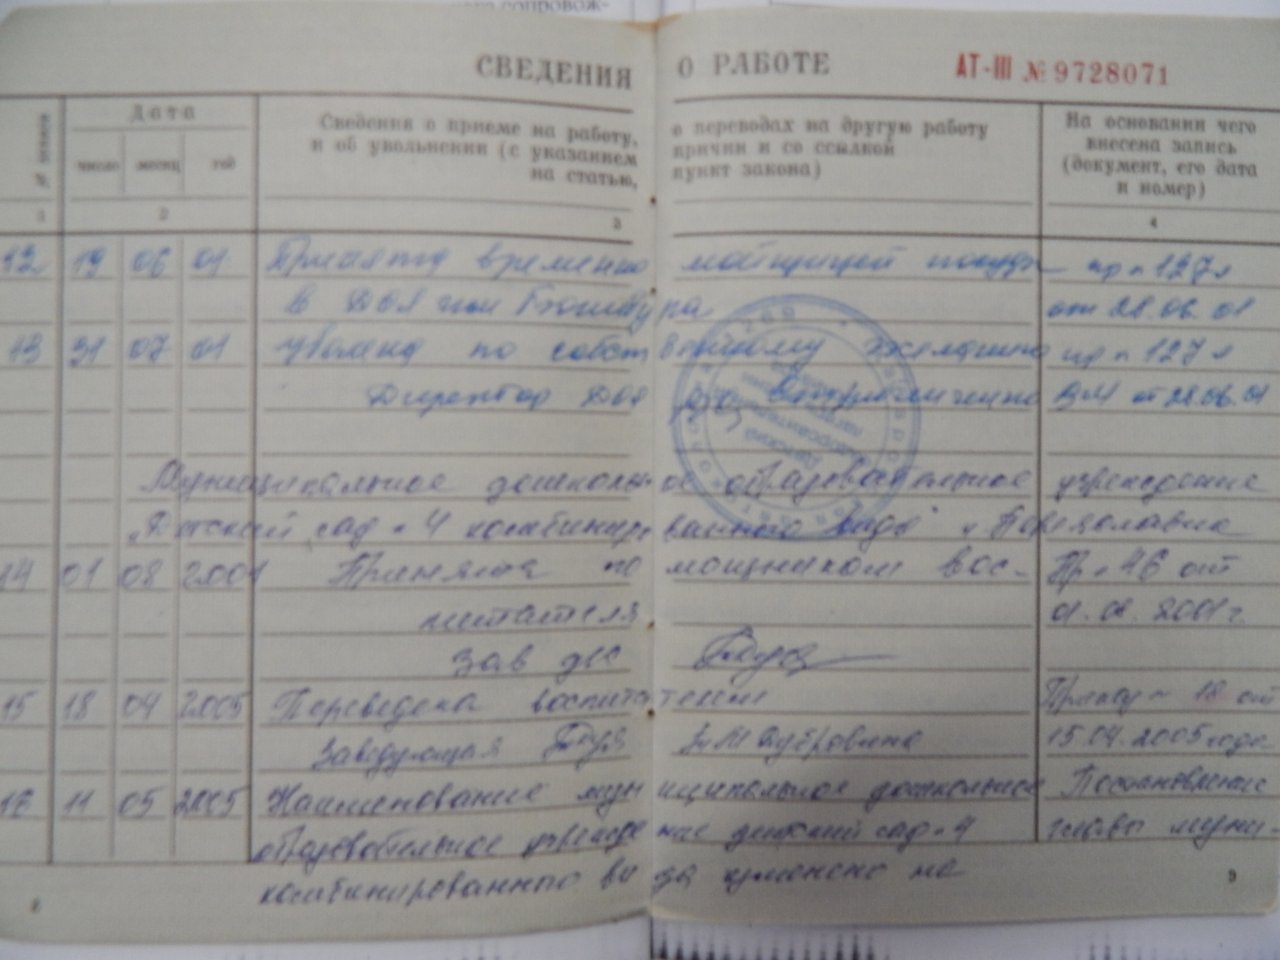 СВЕДЕНИЯ О РАБОТЕ АТ-III № 9728071
Дата
Сведения о приеме на работу, о переводах на другую работу
и об увольнении (с указанием причин и со ссылкой
на статью, пункт закона)
На основании чего
внесена запись
(документ, его дата
и номер)
№ записи
число месяц год
1 2 3 4
12 19 06 01 Принята временно мойщицей посуды пр № 127л
в ДОЛ от 28.06.01
13 31 07 01 уволена по собственному желанию пр № 127л
Директор ДОЛ от 28.06.01
Муниципальное дошкольное образовательное учреждение
"Детский сад № 4 комбинированного вида"
14 01 08 2001 Принята помощником вос- Пр № 46 от
питателя 01.08.2001г.
Зав д/с
15 18 04 2005 Переведена воспитателем Приказ № 18 от
Заведующая 15.04.2005 года
11 05 2005 Наименование муниципальное дошкольное Постановление
образовательное учреждение детский сад № 4 главы муни-
комбинированного вида изменено на
9